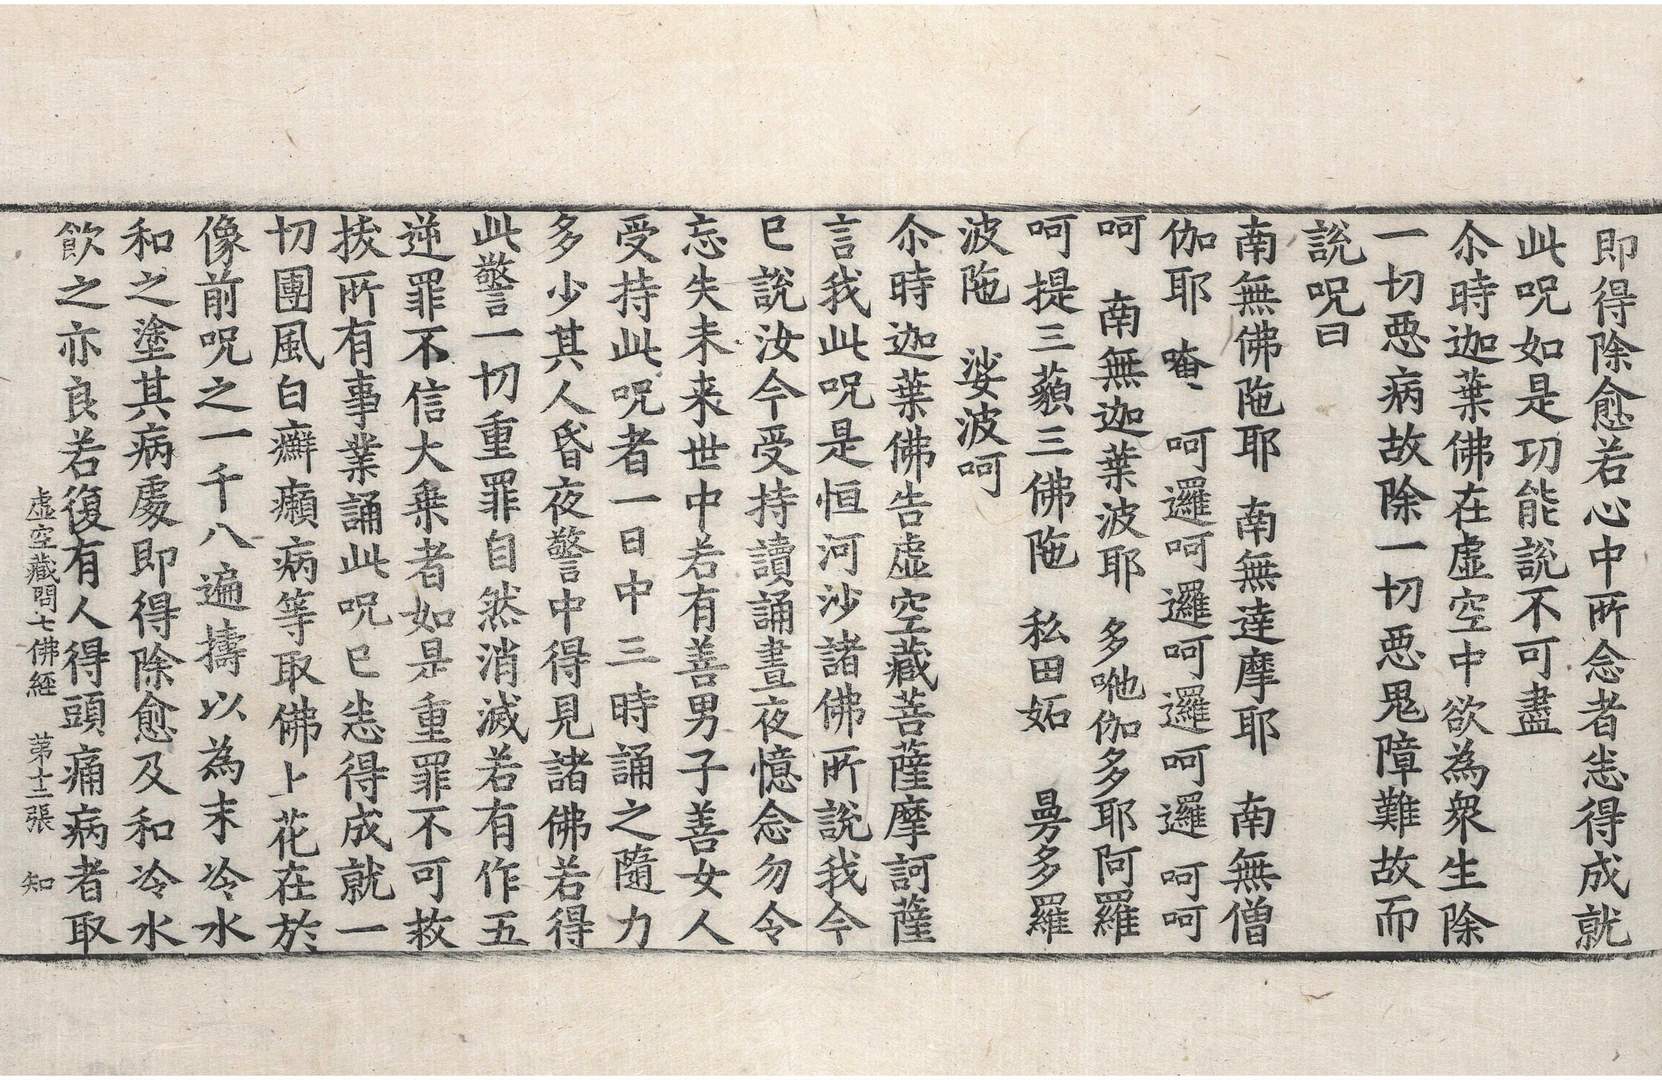 即得除愈若心中所念者悉得成就
此呪如是功能說不可盡
尒時迦葉佛在虛空中欲為衆生除
一切惡病故除一切惡鬼障難故而
說呪曰
南無佛陁耶 南無達摩耶 南無僧
伽耶 唵 呵邏呵邏呵邏呵邏 呵呵
呵 南無迦葉波耶 多哋伽多耶阿羅
呵提三藐三佛陁 私田妬 曷多羅
波陁 娑波呵
尒時迦葉佛告虛空藏菩薩摩訶薩
言我此呪是恒河沙諸佛所說我今
巳說汝今受持讀誦晝夜憶念勿令
忘失未来世中若有善男子善女人
受持此呪者一日中三時誦之隨力
多少其人昏夜警中得見諸佛若得
此警一切重罪自然消滅若有作五
逆罪不信大乗者如是重罪不可救
拔所有事業誦此呪巳悉得成就一
切團風白癬癩病等取佛上花在於
像前呪之一千八遍擣以為末冷水
和之塗其病處即得除愈及和冷水
飲之亦良若復有人得頭痛病者取
虛空藏問七佛經 苐十二張 知